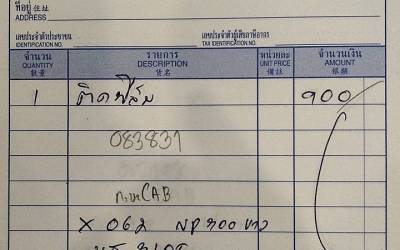 ที่อยู่ 住址
ADDRESS
เลขประจำตัวประชาชน เลขประจำตัวผู้เสียภาษีอากร
IDENTIFICATION NO. TAX IDENTIFICATION NO.
จำนวน รายการ หน่วยละ จำนวนเงิน
QUANTITY DESCRIPTION UNIT PRICE AMOUNT
數量 貨名 備註 銀額
1 ติดฟิล์ม 900
083837
CAB
X 062